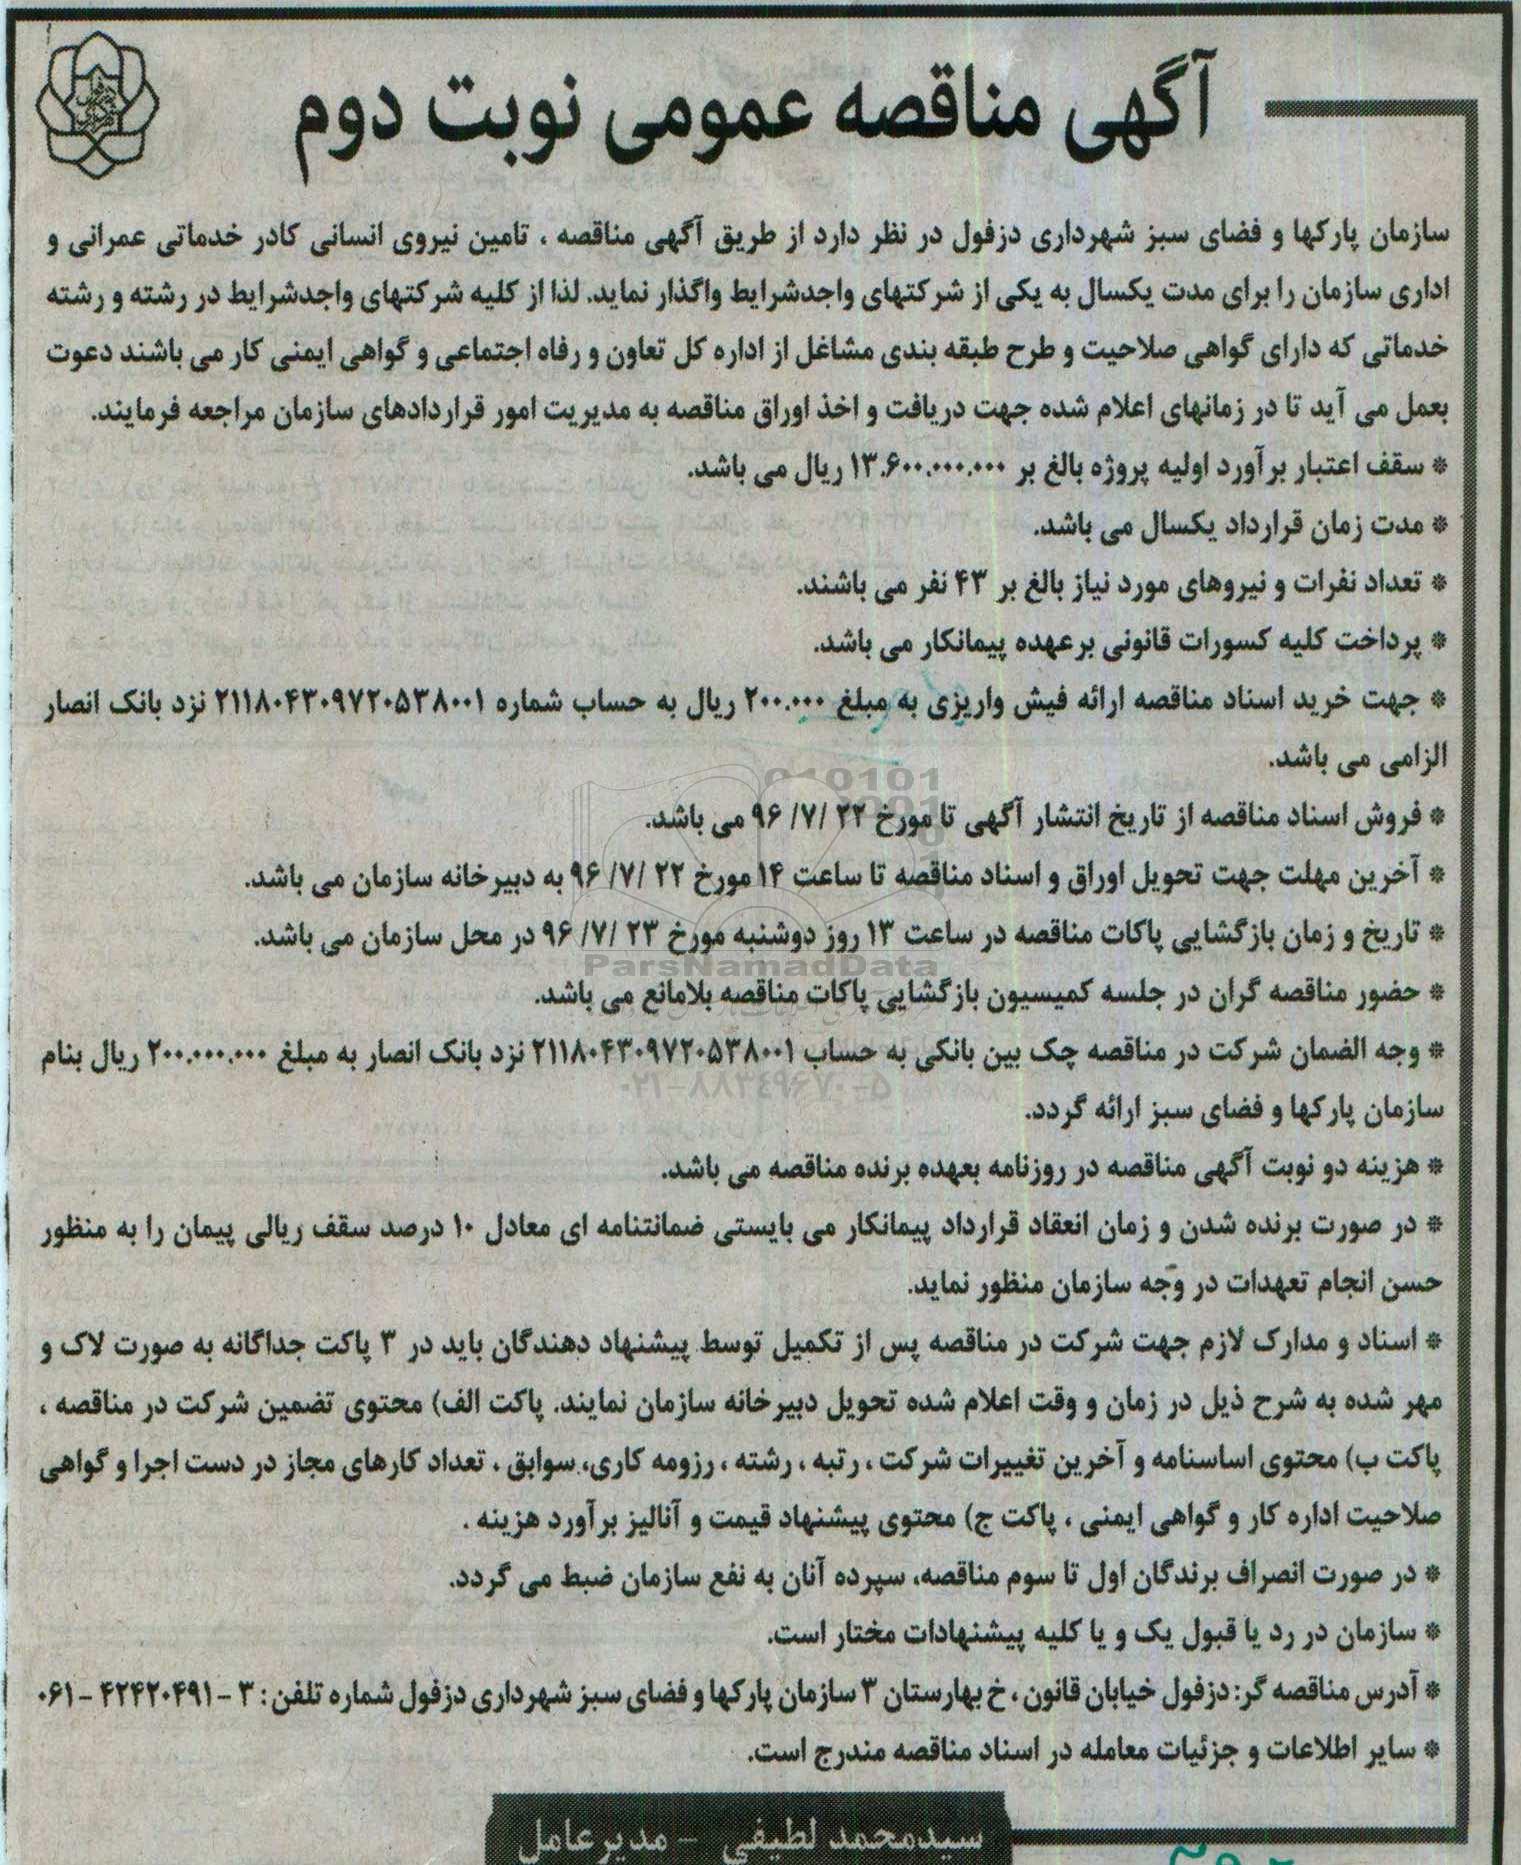 آگهی مناقصه عمومی نوبت دوم
سازمان پارکها و فضای سبز شهرداری دزفول در نظر دارد از طریق آگهی مناقصه ، تامین نیروی انسانی کادر خدماتی عمرانی و
اداری سازمان را برای مدت یکسال به یکی از شرکتهای واجدشرایط واگذار نماید. لذا از کلیه شرکتهای واجدشرایط در رشته و رشته
خدماتی که دارای گواهی صلاحیت و طرح طبقه بندی مشاغل از اداره کل تعاون و رفاه اجتماعی و گواهی ایمنی کار می باشند دعوت
بعمل می آید تا در زمانهای اعلام شده جهت دریافت و اخذ اوراق مناقصه به مدیریت امور قراردادهای سازمان مراجعه فرمایند.
* سقف اعتبار برآورد اولیه پروژه بالغ بر ۱۳.۶۰۰.۰۰۰.۰۰۰ ریال می باشد.
* مدت زمان قرارداد یکسال می باشد.
* تعداد نفرات و نیروهای مورد نیاز بالغ بر ۴۳ نفر می باشند.
* پرداخت کلیه کسورات قانونی برعهده پیمانکار می باشد.
* جهت خرید اسناد مناقصه ارائه فیش واریزی به مبلغ ۲۰۰.۰۰۰ ریال به حساب شماره ۲۱۱۸۰۴۳۰۹۷۲۰۵۳۸۰۰۱ نزد بانک انصار
الزامی می باشد.
* فروش اسناد مناقصه از تاریخ انتشار آگهی تا مورخ ۲۲ /۷/ ۹۶ می باشد.
* آخرین مهلت جهت تحویل اوراق و اسناد مناقصه تا ساعت ۱۴ مورخ ۲۲ /۷/ ۹۶ به دبیرخانه سازمان می باشد.
* تاریخ و زمان بازگشایی پاکات مناقصه در ساعت ۱۳ روز دوشنبه مورخ ۲۳ /۷/ ۹۶ در محل سازمان می باشد.
ParsNamadData
* حضور مناقصه گران در جلسه کمیسیون بازگشایی پاکات مناقصه بلامانع می باشد.
* وجه الضمان شرکت در مناقصه چک بین بانکی به حساب ۲۱۱۸۰۴۳۰۹۷۲۰۵۳۸۰۰۱ نزد بانک انصار به مبلغ ۲۰۰.۰۰۰.۰۰۰ ریال بنام
۰۲۱-۸۸۳٤۹٦۷۰-۵
سازمان پارکها و فضای سبز ارائه گردد.
* هزینه دو نوبت آگهی مناقصه در روزنامه بعهده برنده مناقصه می باشد.
* در صورت برنده شدن و زمان انعقاد قرارداد پیمانکار می بایستی ضمانتنامه ای معادل ۱۰ درصد سقف ریالی پیمان را به منظور
حسن انجام تعهدات در وجه سازمان منظور نماید.
* اسناد و مدارک لازم جهت شرکت در مناقصه پس از تکمیل توسط پیشنهاد دهندگان باید در ۳ پاکت جداگانه به صورت لاک و
مهر شده به شرح ذیل در زمان و وقت اعلام شده تحویل دبیرخانه سازمان نمایند. پاکت الف) محتوی تضمین شرکت در مناقصه ،
پاکت ب) محتوی اساسنامه و آخرین تغییرات شرکت ، رتبه ، رشته ، رزومه کاری، سوابق ، تعداد کارهای مجاز در دست اجرا و گواهی
صلاحیت اداره کار و گواهی ایمنی ، پاکت ج) محتوی پیشنهاد قیمت و آنالیز برآورد هزینه .
* در صورت انصراف برندگان اول تا سوم مناقصه، سپرده آنان به نفع سازمان ضبط می گردد.
* سازمان در رد یا قبول یک و یا کلیه پیشنهادات مختار است.
* آدرس مناقصه گر: دزفول خیابان قانون ، خ بهارستان ۳ سازمان پارکها و فضای سبز شهرداری دزفول شماره تلفن : ۳ - ۴۲۴۲۰۴۹۱ - ۰۶۱
* سایر اطلاعات و جزئیات معامله در اسناد مناقصه مندرج است.
سیدمحمد لطیفی - مدیرعامل